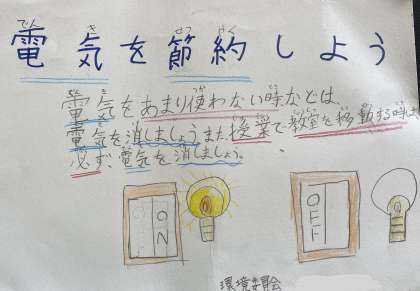 電気を節約しよう
電気をあまり使わない時などは、
電気を消しましょう。また授業で教室を移動する時は、
必ず、電気を消しましょう。
ON
OFF
環境委員会